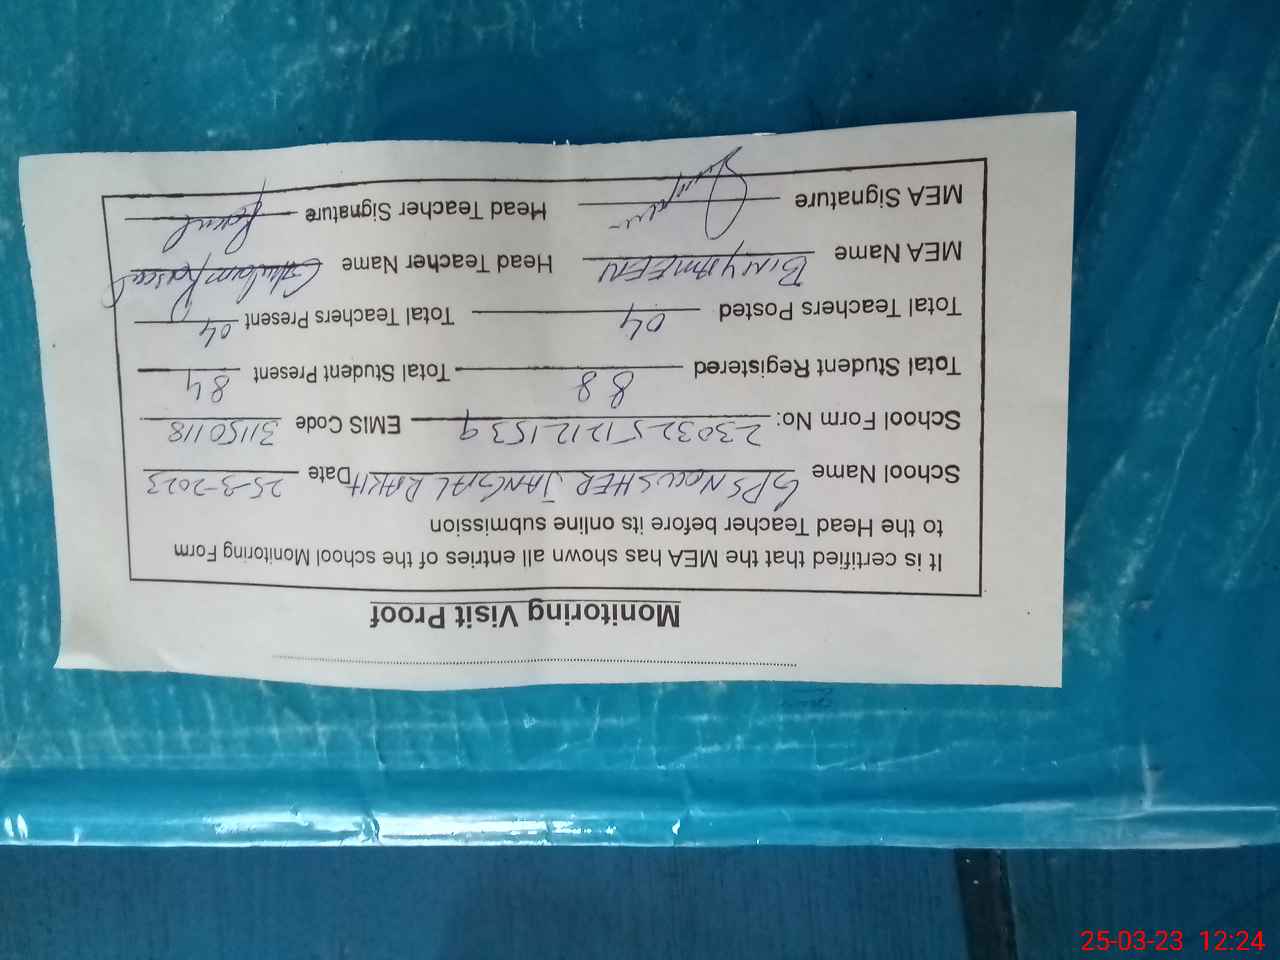 Monitoring Visit Proof
It is certified that the MEA has shown all entries of the school Monitoring Form
to the Head Teacher before its online submission
School Name GPS NOUSHER JANGAL RAKH Date 25-3-2023
School Form No: 23032512121539 EMIS Code 31150118
Total Student Registered 88 Total Student Present 84
Total Teachers Posted 04 Total Teachers Present 04
MEA Name BINYAMEEN Head Teacher Name Ghulam Rasool
MEA Signature Head Teacher Signature
25-03-23 12:24